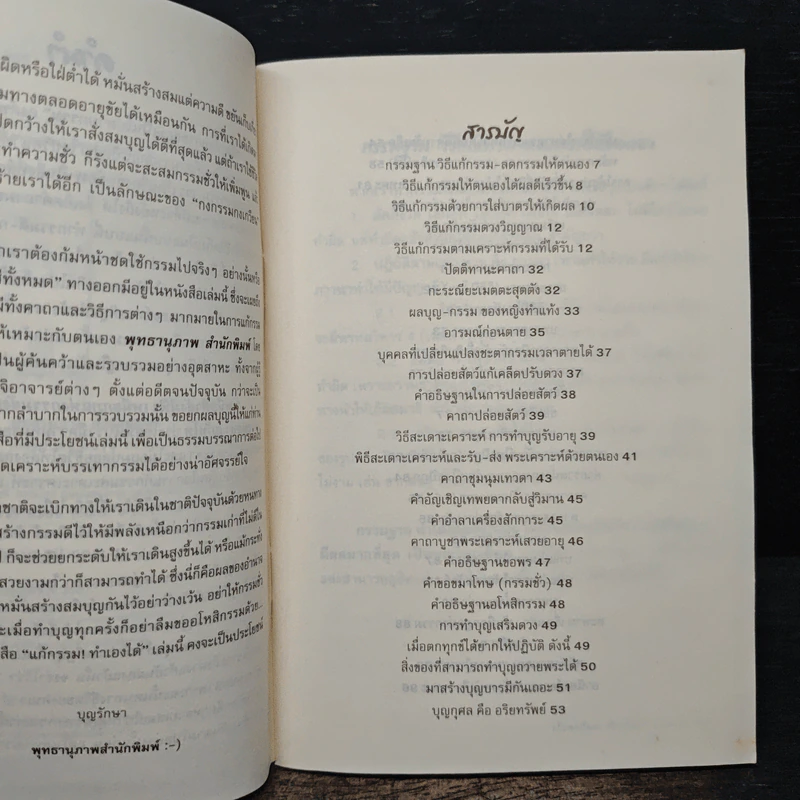 ผิดหรือใฝ่ต่ำได้ หมั่นสร้างสมแต่ความดี ขยันเก็บเกี่ยว
มทางตลอดอายุขัยได้เหมือนกัน การที่เราได้เกิดมา
ปิดกว้างให้เราสั่งสมบุญได้ดีที่สุดแล้ว แต่ถ้าเราใช้ชีวิต
ทำความชั่ว ก็รังแต่จะสะสมกรรมชั่วให้เพิ่มพูน
ร้ายเราได้อีก เป็นลักษณะของ “กงกรรมกงเกวียน”
าเราต้องก้มหน้าชดใช้กรรมไปจริงๆ อย่างนั้นหรือ
ทั้งหมด” ทางออกมีอยู่ในหนังสือเล่มนี้
มีทั้งคาถาและวิธีการต่างๆ มากมายในการแก้กรรม
ห้เหมาะกับตนเอง พุทธานุภาพ สำนักพิมพ์ โดย
ป็นผู้ค้นคว้าและรวบรวมอย่างอุตสาหะ ทั้งจาก
จิอาจารย์ต่างๆ ตั้งแต่อดีตจนปัจจุบัน กว่าจะเป็น
ากลำบากในการรวบรวมนั้น ขอยกผลบุญนี้ให้แก่ท่าน
สือที่มีประโยชน์เล่มนี้ เพื่อเป็นธรรมบรรณาการต่อไป
ดเคราะห์บรรเทากรรมได้อย่างน่าอัศจรรย์ใจ
าชาติจะเบิกทางให้เราเดินในชาติปัจจุบันด้วยหนทาง
สร้างกรรมดีไว้ให้มีพลังเหนือกว่ากรรมเก่าที่ไม่ดีใน
ก็จะช่วยยกระดับให้เราเดินสูงขึ้นได้ หรือแม้กระทั่ง
สวยงามกว่าก็สามารถทำได้ ซึ่งนี่ก็คือผลของอำนาจ
หมั่นสร้างสมบุญกันไว้อย่าว่างเว้น อย่าให้กรรมชั่ว
ะเมื่อทำบุญทุกครั้งก็อย่าลืมขออโหสิกรรมด้วย...
สือ “แก้กรรม! ทำเองได้” เล่มนี้ คงจะเป็นประโยชน์
บุญรักษา
พุทธานุภาพสำนักพิมพ์ :-)
สารบัญ
กรรมฐาน วิธีแก้กรรม-ลดกรรมให้ตนเอง 7
วิธีแก้กรรมให้ตนเองได้ผลดีเร็วขึ้น 8
วิธีแก้กรรมด้วยการใส่บาตรให้เกิดผล 10
วิธีแก้กรรมดวงวิญญาณ 12
วิธีแก้กรรมตามเคราะห์กรรมที่ได้รับ 12
ปัตติทานะคาถา 32
กะระณียะเมตตะสุตตัง 32
ผลบุญ-กรรม ของหญิงทำแท้ง 33
อารมณ์ก่อนตาย 35
บุคคลที่เปลี่ยนแปลงชะตากรรมเวลาตายได้ 37
การปล่อยสัตว์แก้เคล็ดปรับดวง 37
คำอธิษฐานในการปล่อยสัตว์ 38
คาถาปล่อยสัตว์ 39
วิธีสะเดาะเคราะห์ การทำบุญรับอายุ 39
พิธีสะเดาะเคราะห์และรับ-ส่ง พระเคราะห์ด้วยตนเอง 41
คาถาชุมนุมเทวดา 43
คำอัญเชิญเทพยดากลับสู่วิมาน 45
คำอำลาเครื่องสักการะ 45
คาถาบูชาพระเคราะห์เสวยอายุ 46
คำอธิษฐานขอพร 47
คำขอขมาโทษ (กรรมชั่ว) 48
คำอธิษฐานอโหสิกรรม 48
การทำบุญเสริมดวง 49
เมื่อตกทุกข์ได้ยากให้ปฏิบัติ ดังนี้ 49
สิ่งของที่สามารถทำบุญถวายพระได้ 50
มาสร้างบุญบารมีกันเถอะ 51
บุญกุศล คือ อริยทรัพย์ 53